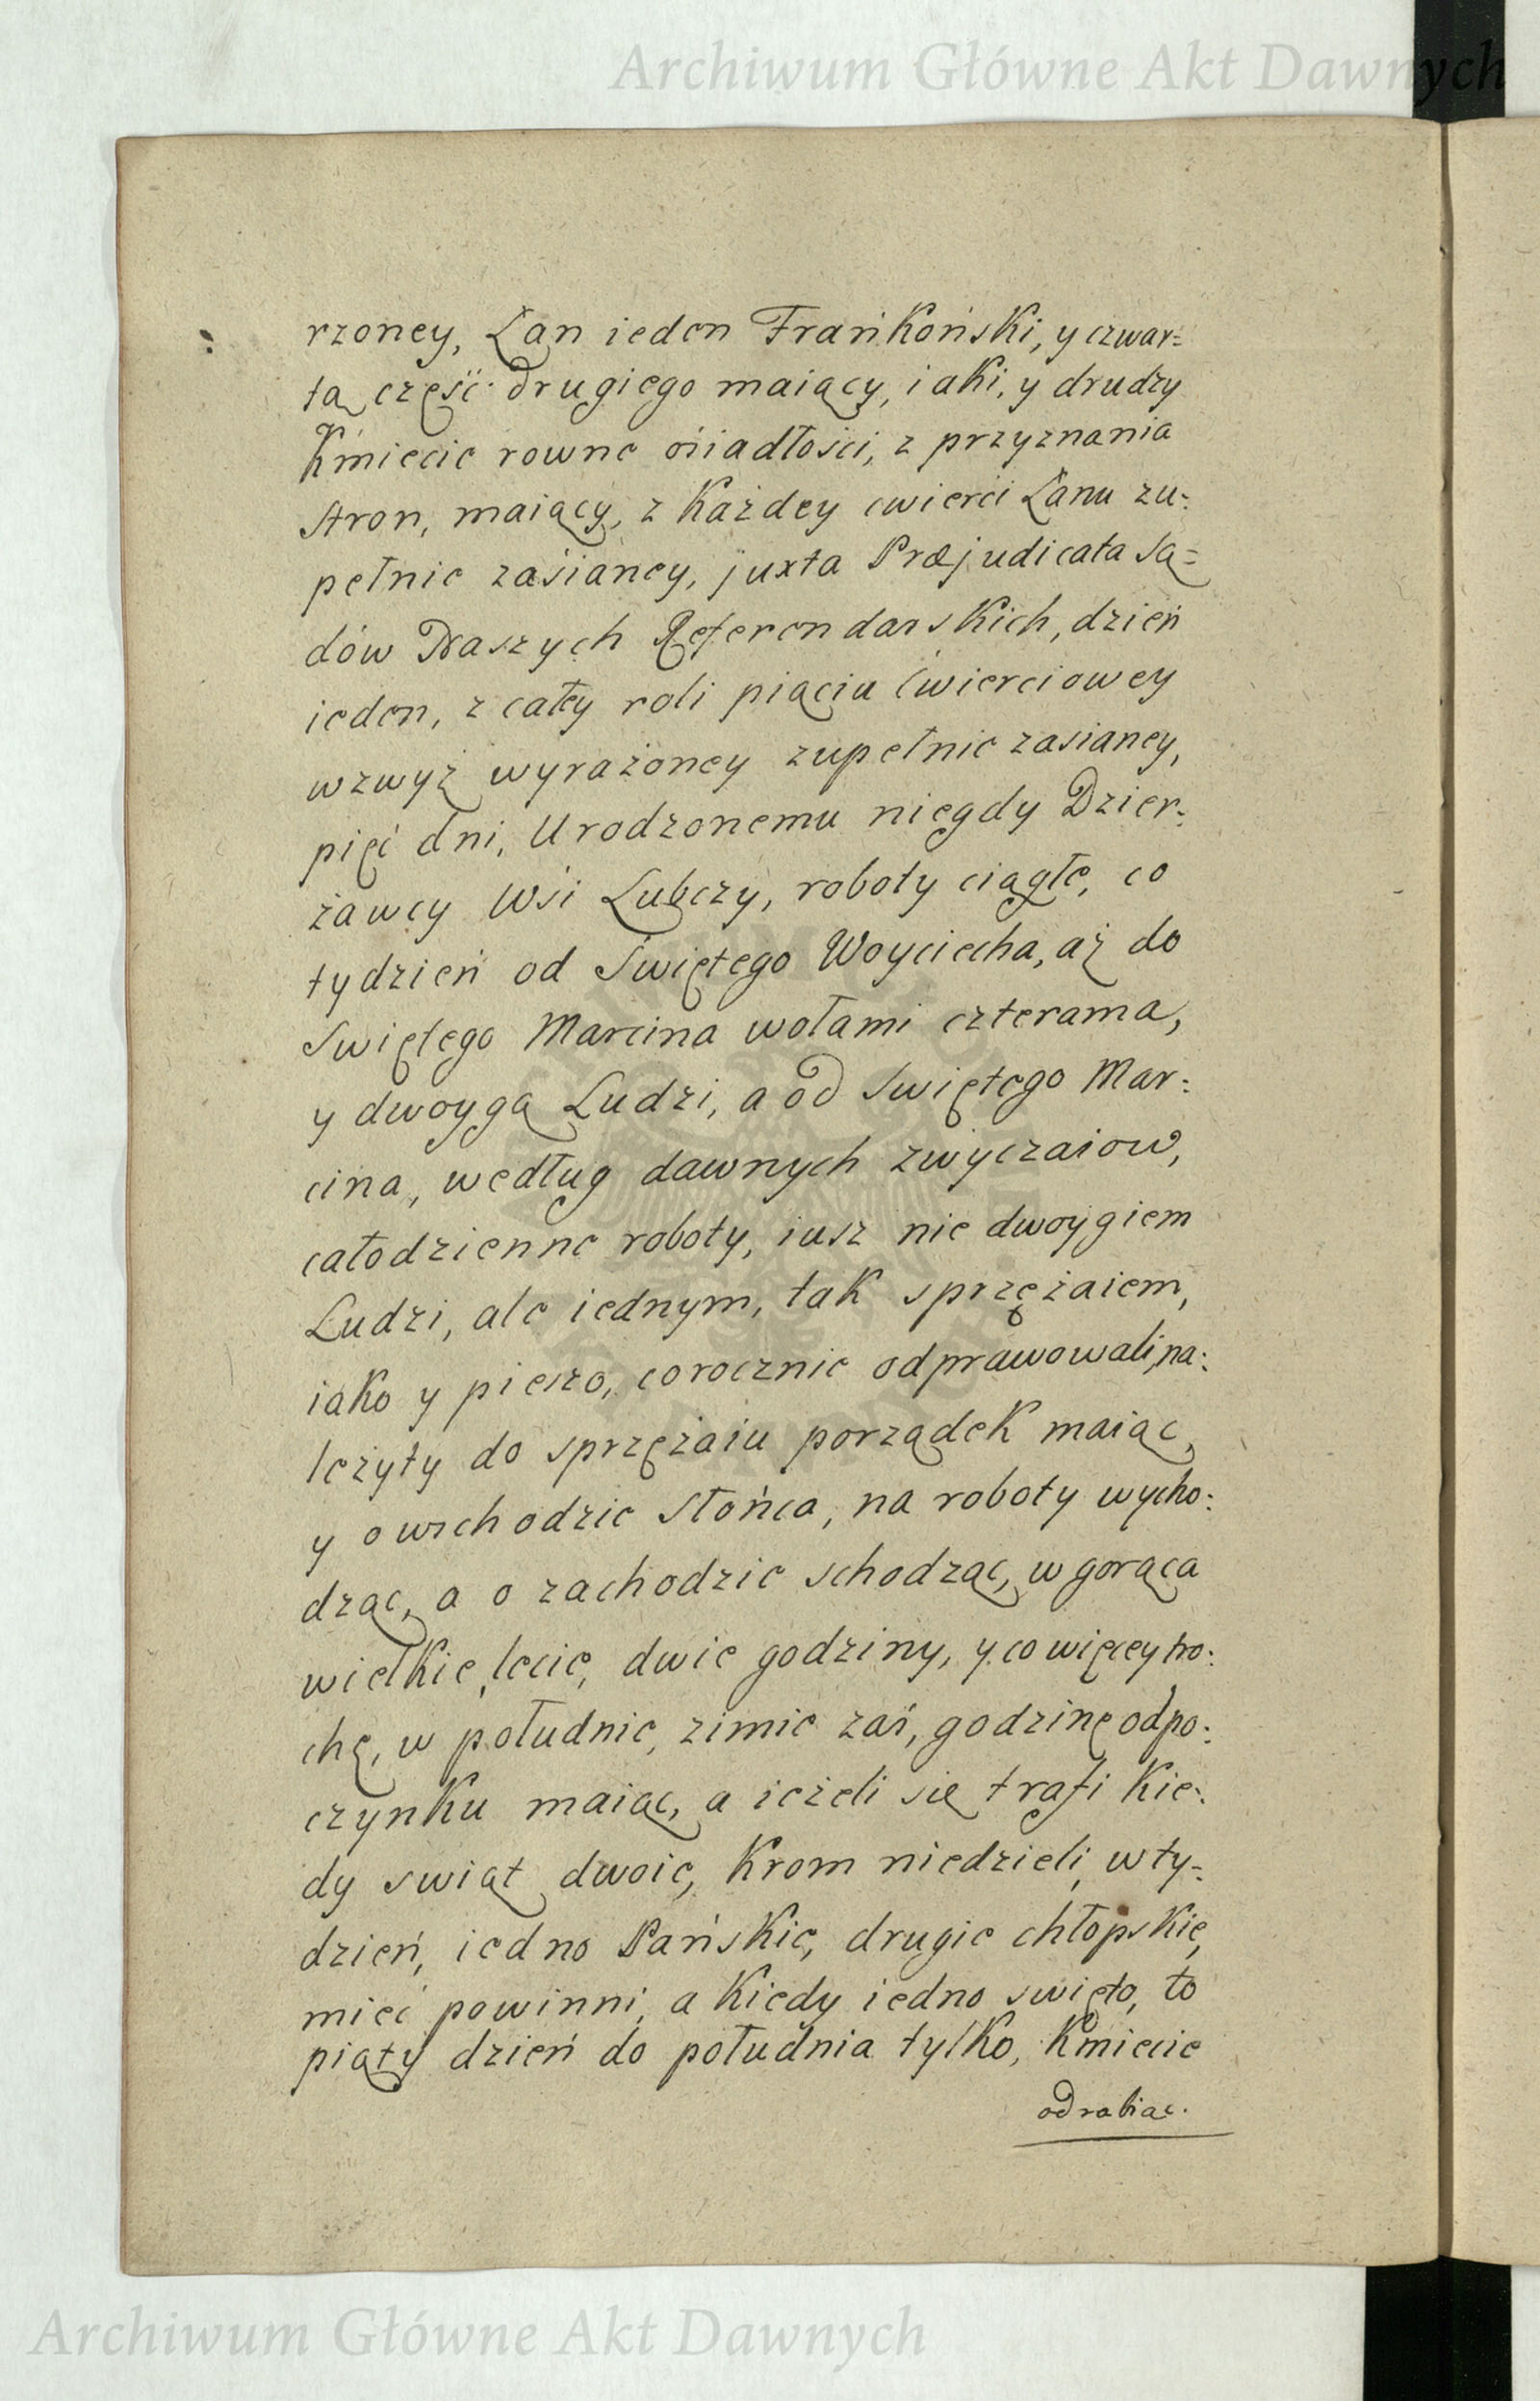 Archiwum Główne Akt Dawnych
rzoney, Łan ieden Frańkoński, y czwar=
tą część drugiego maiący, iaki, y drudzy
Kmiecie rowne ośiadłości, z przyznania
stron, maiący, z Każdey cwierci Łanu zu=
pełnie zaśianey, juxta Præjudicata są=
dów Naszych Referendarskich, dzień
ieden, z cały roli piąciu ćwierciowey
wzwyż wyrażoney zupełnie zasianey,
pięć dni, Urodzonemu niegdy Dzier=
żawcy Wśi Lubczy, roboty ciągłe, co
tydzień od Swiętego Woyciecha, aż do
Swiętego Marcina wołami czterama,
y dwoygą Ludzi, a od Swiętego Mar=
cina, według dawnych zwyczaiow,
całodzienne roboty, iusz nie dwoygiem
Ludzi, ale iednym, tak sprzężaiem,
iako y pieszo, corocznie odprawowali, na=
leżyty do sprzężaiu porządek maiąc,
y o wschodzie Słońca, na roboty wycho=
dząc, a o zachodzie schodząc, w gorąca
wielkie, lecie, dwie godziny, y co więcey tro=
chę, w południe, zimie zaś, godzinę odpo=
czynku maiąc, a ieżeli się trafi Kie=
dy swiąt dwoie, Krom niedzieli, w ty=
dzień, iedno Pańskie, drugie chłopskie,
mieć powinni, a Kiedy iedno swięto, to
piąty dzień do południa tylko, Kmiecie
odrabiac.
Archiwum Główne Akt Dawnych